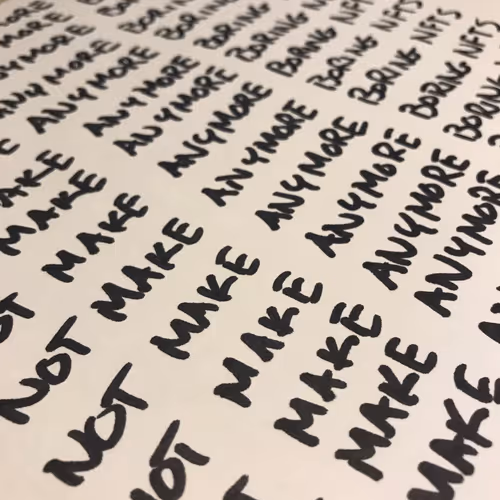 ANYMORE BORING
ANYMORE BORING
MAKE ANYMORE BORING
MAKE ANYMORE BORING NFTS
NOT MAKE ANYMORE BORING NFTS
NOT MAKE ANYMORE BORING NFTS
NOT MAKE ANYMORE BORING NFTS
MAKE ANYMORE BORING
MAKE ANYMORE
MAKE